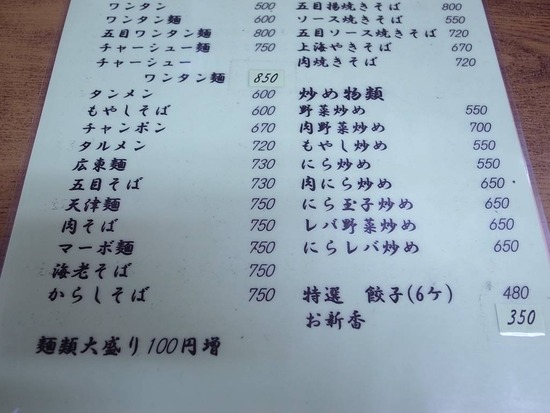 ワンタン 500
ワンタン麺 600
五目ワンタン麺 800
チャーシュー麺 750
チャーシュー
ワンタン麺 850
タンメン 600
もやしそば 600
チャンポン 670
タルメン 720
広東麺 730
五目そば 730
天津麺 750
肉そば 750
マーボ麺 750
海老そば 750
からしそば 750
麺類大盛り100円増
五目揚焼きそば 800
ソース焼きそば 550
五目ソース焼きそば 720
上海やきそば 670
肉焼きそば 720
炒め物類
野菜炒め 550
肉野菜炒め 700
もやし炒め 550
にら炒め 550
肉にら炒め 650
にら玉子炒め 650
レバ野菜炒め 650
にらレバ炒め 650
特選 餃子(6ケ) 480
お新香 350